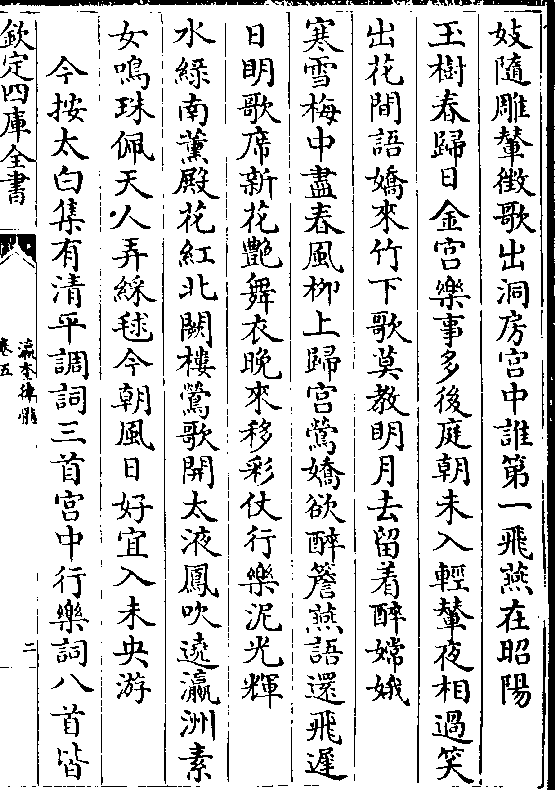 妓隨雕輦徴歌出洞房宫中誰第一飛燕在昭陽
玉樹春歸日金宫樂事多後庭朝未入輕輦夜相過笑
出花間語嬌來竹下歌莫教明月去留着醉嫦娥
寒雪梅中盡春風柳上歸宫鶯嬌欲醉簷燕語還飛遲
日明歌席新花艶舞衣晚來移彩仗行樂泥光輝
水綠南薰殿花紅北闕樓鶯歌開太液鳳吹遶瀛洲素
女鳴珠佩天人弄綵毬今朝風日好宜入未央游
今按太白集有清平調詞三首宫中行樂詞八首皆
欽定四庫全書
瀛奎律髓
卷五
二